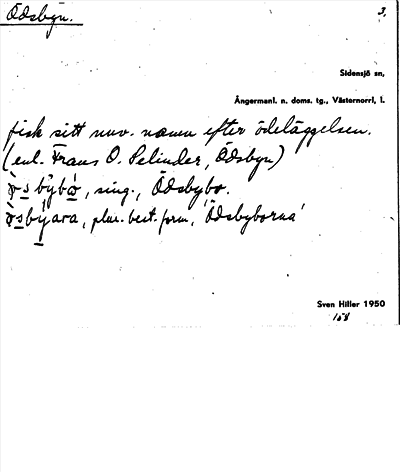 Ödsbyn.
3.
Sidensjö sn,
Ångermanl. n. doms. tg., Västernorrl. l.
fick sitt nuv. namn efter ödeläggelsen.
(enl. Frans O. Selinder, Ödsbyn)
sing., Ödsbybo.
plur. best. form, 'Ödsbyborna'
Sven Hiller 1950